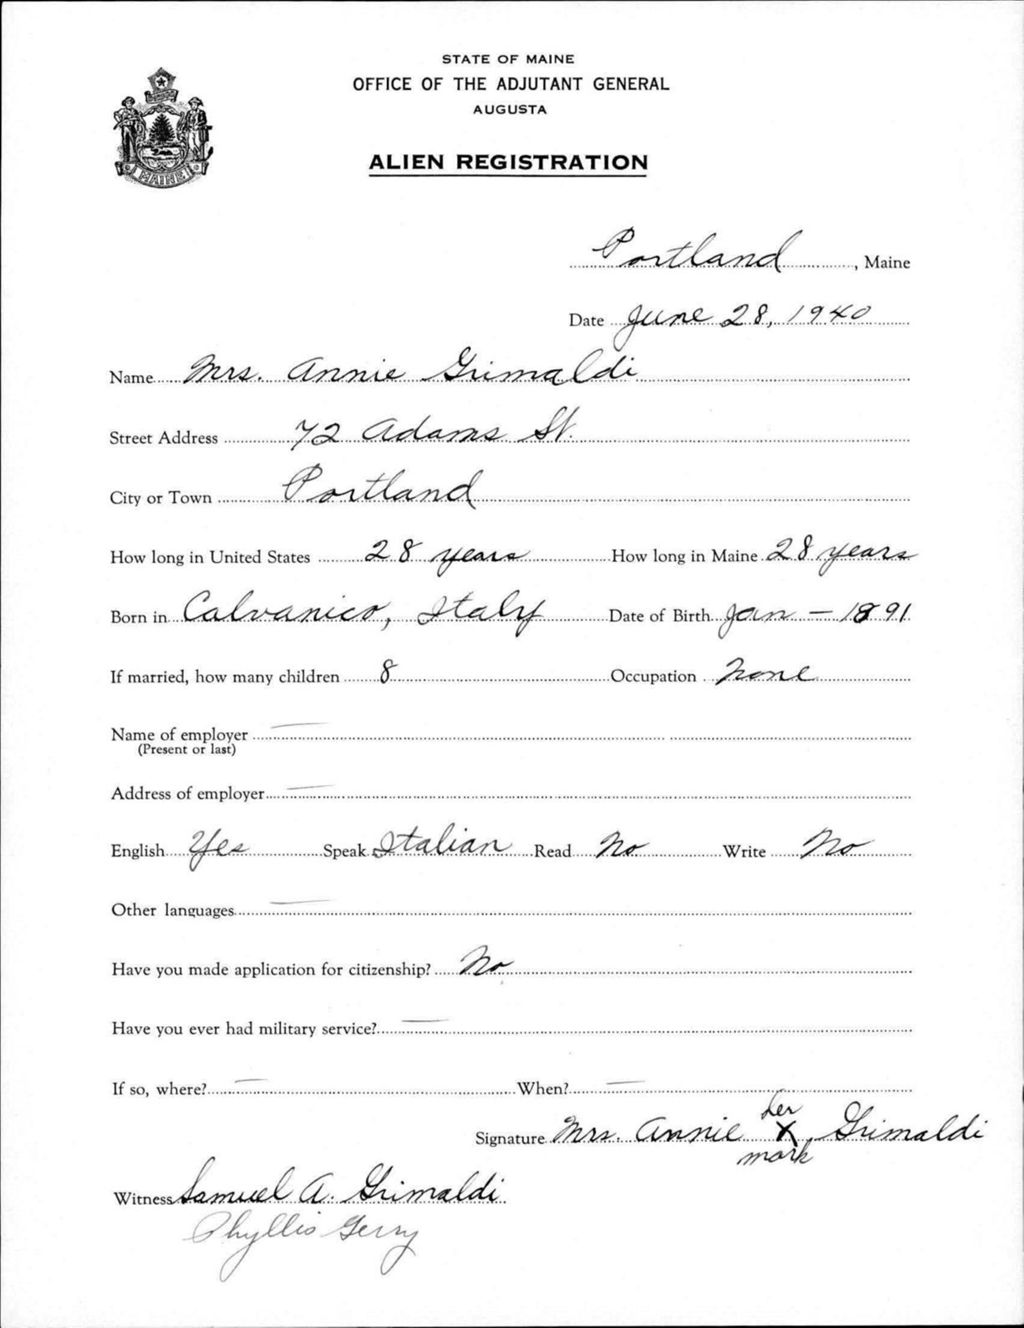 STATE OF MAINE
OFFICE OF THE ADJUTANT GENERAL
AUGUSTA
ALIEN REGISTRATION
MAINE
Portland, Maine
Date June 28, 1940
Name Mrs. Annie Grimaldi
Street Address 72 Adams St.
City or Town Portland
How long in United States 28 years How long in Maine 28 years
Born in Calvanico, Italy Date of Birth Jan — 1891
If married, how many children 8 Occupation None
Name of employer —
(Present or last)
Address of employer —
English Yes Speak Italian Read No Write No
Other languages —
Have you made application for citizenship? No
Have you ever had military service? —
If so, where? — When? —
her
Signature Mrs. Annie X Grimaldi
mark
Witness Samuel A. Grimaldi
Phyllis Gerry